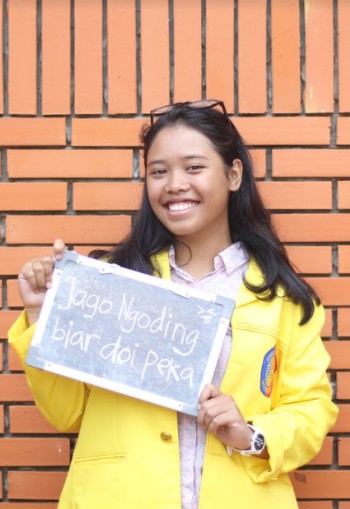 Jago Ngoding
biar doi peka